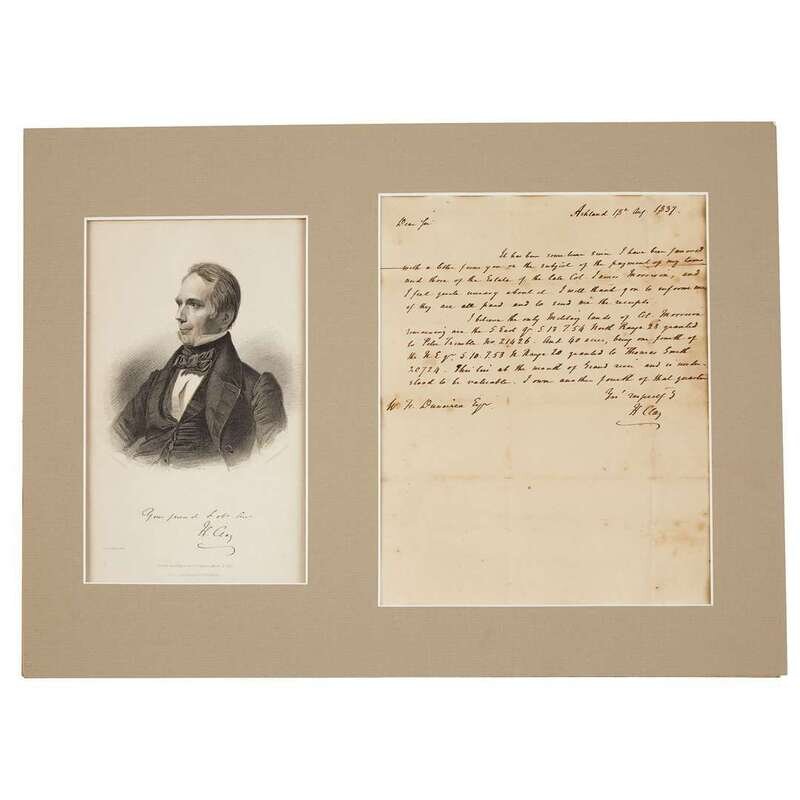 Your friend & ob. Ser.
H. Clay
Ashland 15th Aug 1837.
Dear Sir
It has been some time since I have been favored
with a letter from you on the subject of the payment of my taxes
and those of the Estate of the late Col. James Morrison, and
I feel quite uneasy about it. I will thank you to inform me
if they are all paid and to send me the receipts.
I believe the only Military lands of Col. Morrison
remaining are the S. East qr. S. 13 T. 54 North Range 22 granted
to Peter Trimble No. 21426. And 40 acres, being one fourth of
the N.E. qr. S. 10. T. 53 N. Range 20 granted to Thomas Smith
20724. This lies at the mouth of Grand river and is under-
stood to be valuable. I own another fourth of that quarter
Yrs. respectfy
H. Clay
W. H. Esqr.